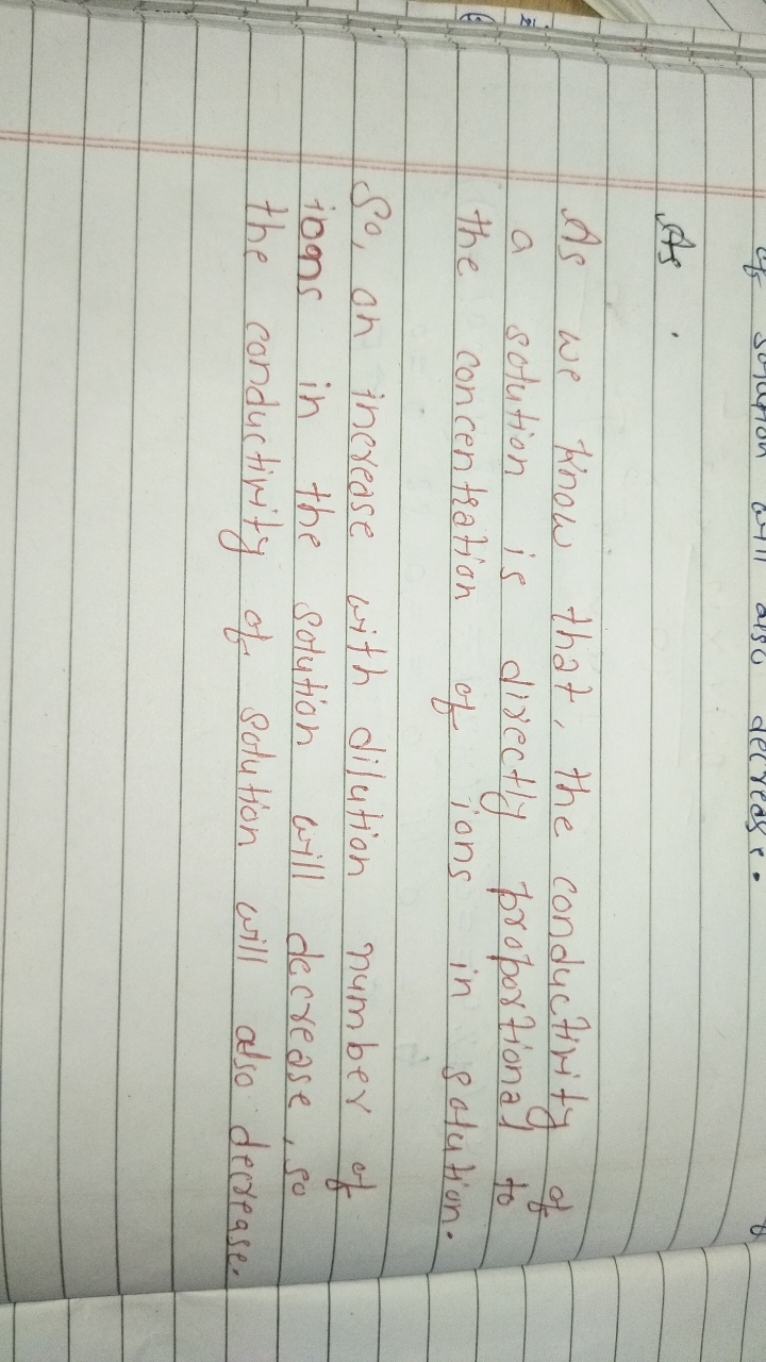 of solution will also decrease.
As
As we know that, the conductivity of
a solution is directly proportional to
the concentration of ions in solution.
So, on increase with dilution number of
ions in the solution will decrease, so
the conductivity of solution will also decrease.